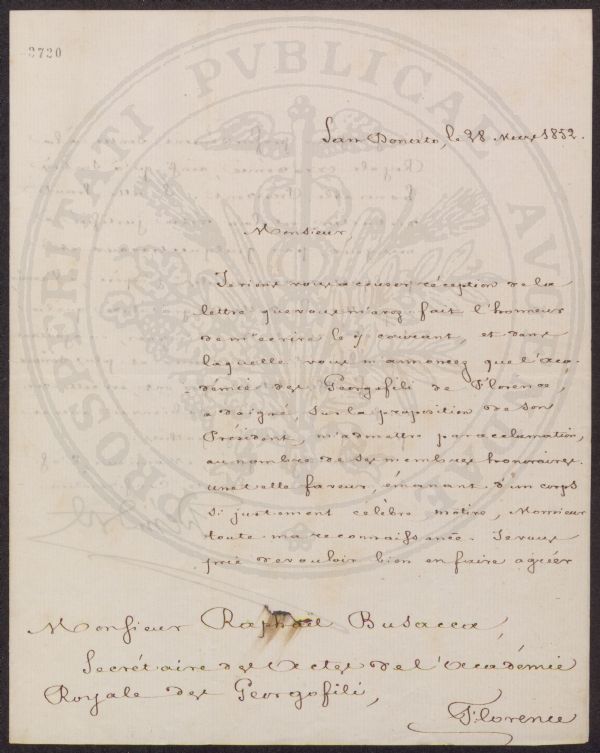 2720
PROSPERITATI PVBLICAE AVGENDAE
San Donato, le 28 Mars 1852.
Monsieur,
Je viens vous accuser réception de la
lettre que vous m'avez fait l'honneur
de m'écrire le 9 courant, et dans
laquelle vous m'annoncez que l'Aca-
démie des Georgofili de Florence,
a daigné, sur la proposition de son
Président, m'admettre par acclamation,
au nombre de ses membres honoraires.
Une telle faveur, émanant d'un corps
si justement celèbre, mérite, Monsieur
toute ma reconnaissance. Je vous
prie de vouloir bien en faire agréer
Monsieur Raphaël Busacca,
Secrétaire des Actes de l'Académie
Royale des Georgofili,
Florence